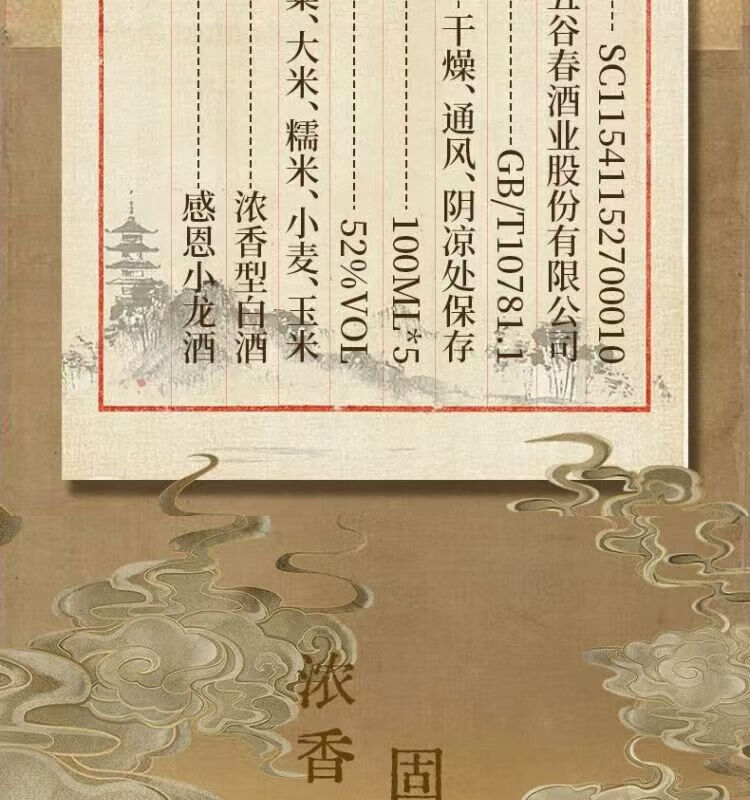 感恩小龙酒
浓香型白酒
、大米、糯米、小麦、玉米
52%VOL
100ML*5
干燥、通风、阴凉处保存
GB/T10781.1
五谷春酒业股份有限公司
SC11541152700010
浓香
固